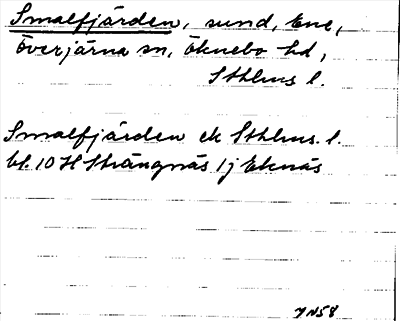 Smalfjärden, sund, Ene,
Överjärna sn, Öknebo hd,
Sthlms l.
Smalfjärden ek Sthlms. l.
bl. 10 H Strängnäs 1j Eknäs
JN58